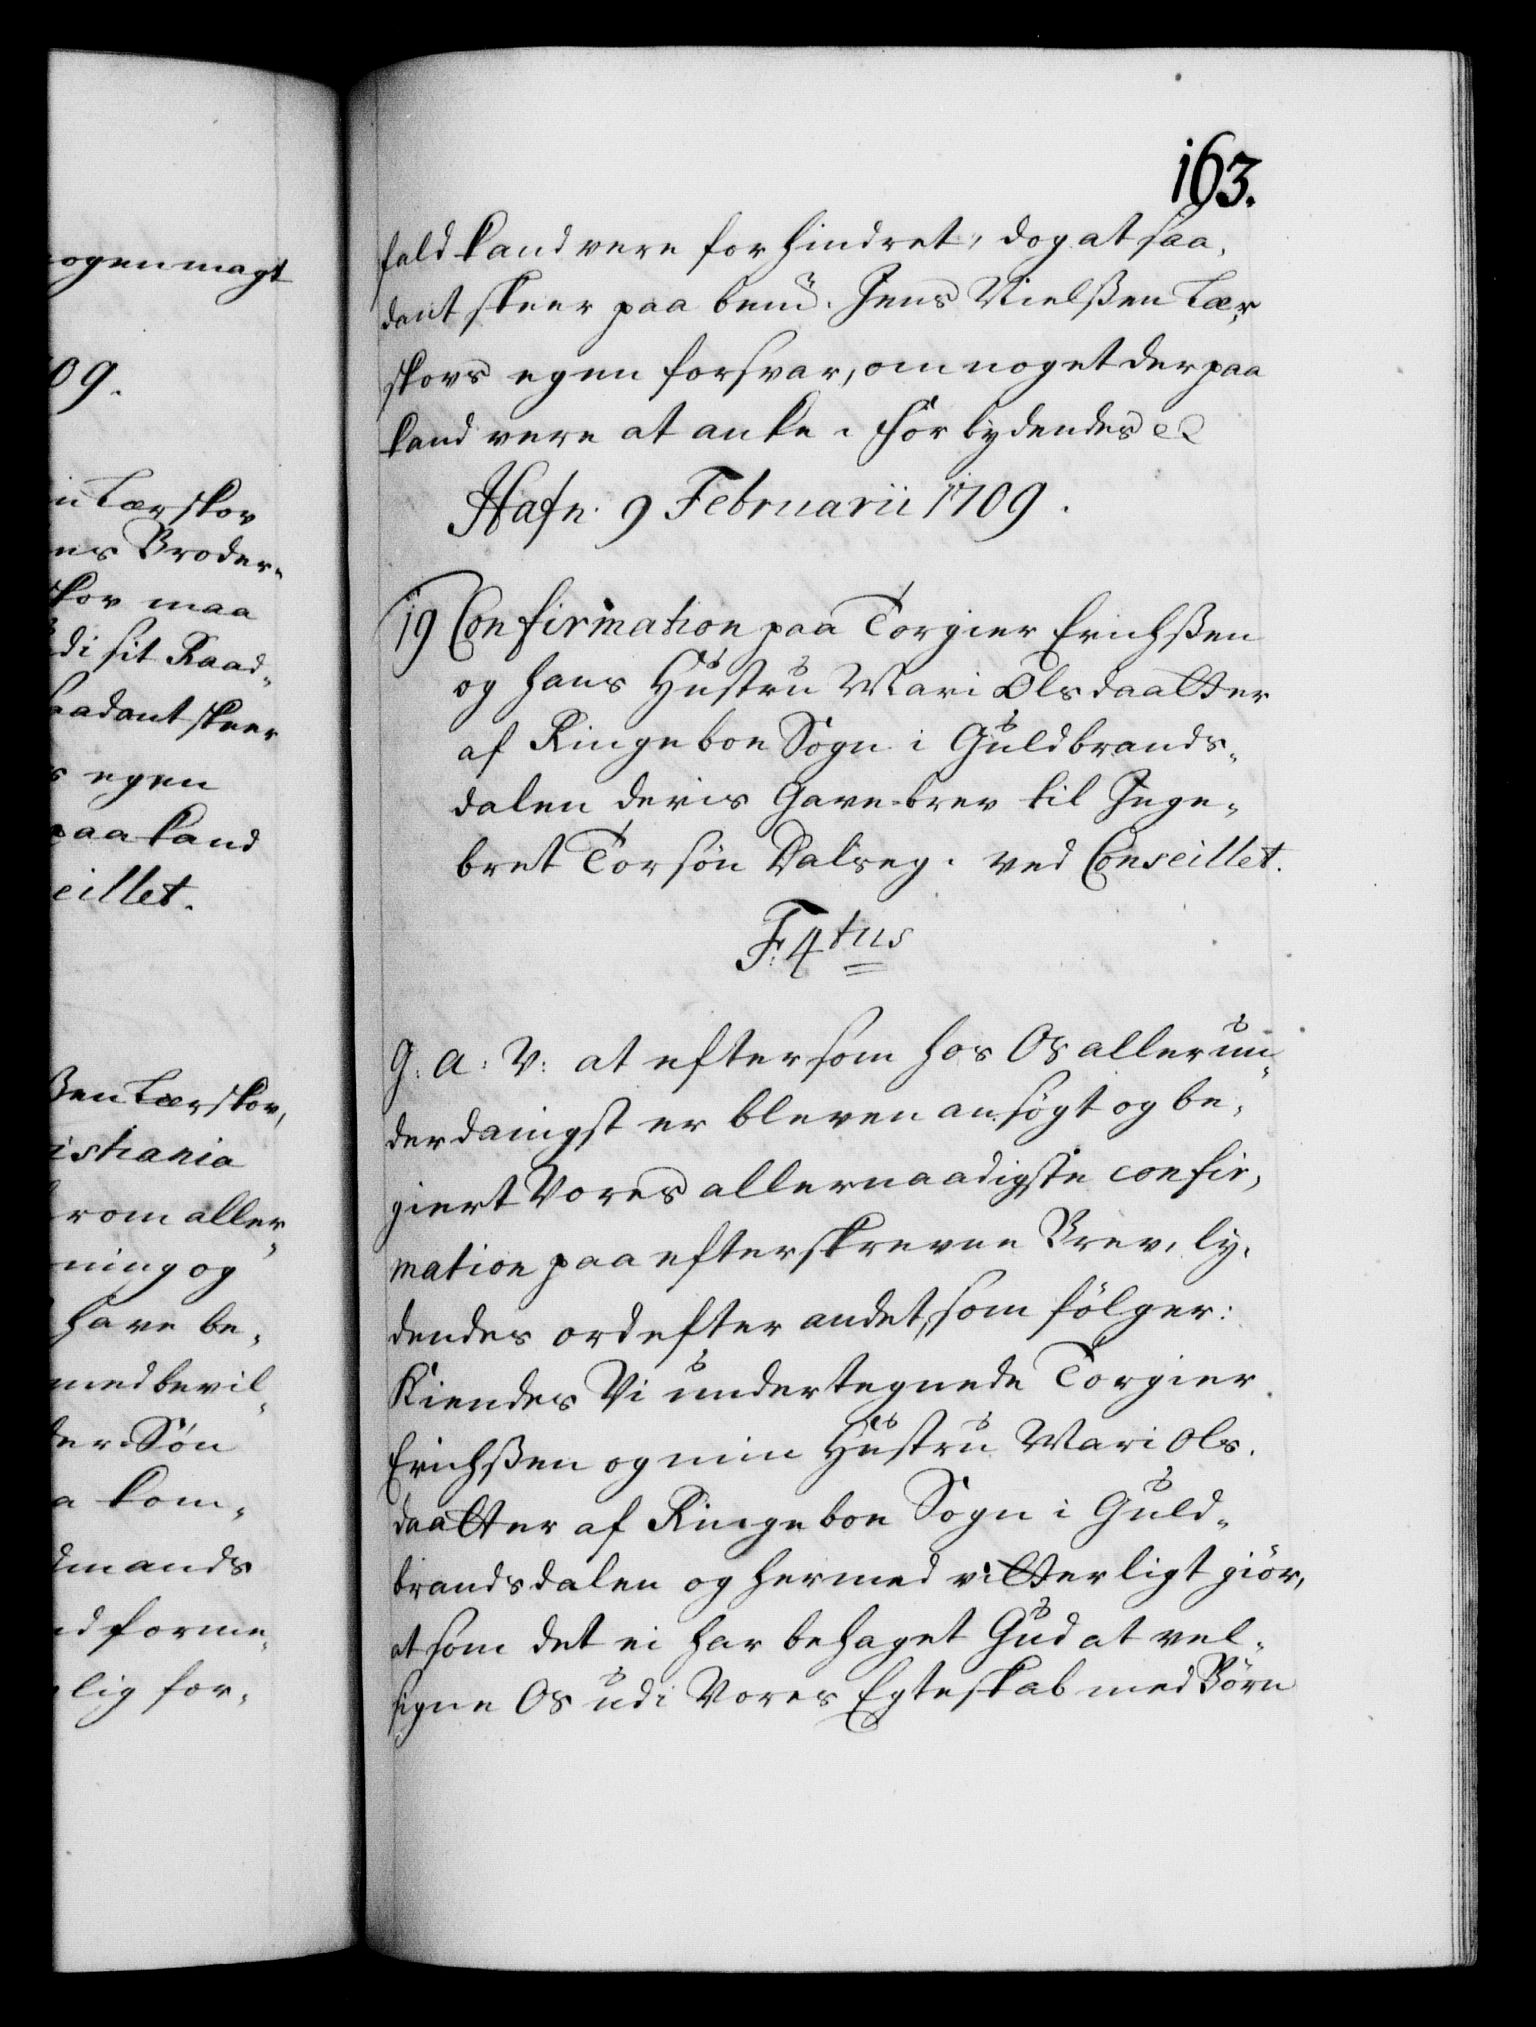 ogen magt
09.
in Lærskov
ens Broder-
skov maa
di sit Raad-
saadant skeer
s egen
paa kand
eillet.
ßen Lærskov,
istiania
from aller-
ning og
have be-
med bevil-
der Søn
a kom-
dmands
ed forme-
lig for-
163.
fald kand vere forhindret, dog at saa-
dant skeer paa bem.d Jens Nielßen Lær-
skovs egen forsvar, om noget derpaa
kand vere at anke. Forbydendes etc
Hafn. 9 Februarii 1709.
19 Confirmation paa Torgier Erichßen
og hans Hustru Mari Olsdaatter
af Ringeboe Sogn i Guldbrands-
dalen deris Gavebrev til Inge-
bret Torsøn Dalseg. ved Conseillet.
F. 4tus
G. A. V: at eftersom hos Os allerun-
derdanigst er bleven ansøgt og be-
giert Vores allernaadigste confir-
mation paa efterskrevne Brev, ly-
dendes ord efter andet, som følger:
Kiendes Vi undertegnede Torgier
Erichßen og min Hustru Mari Ols-
daatter af Ringeboe Sogn i Guld-
brandsdalen og hermed vitterligt giør,
at som det ei har behaget Gud at vel-
signe Os udi Vores Egteskab med Børn